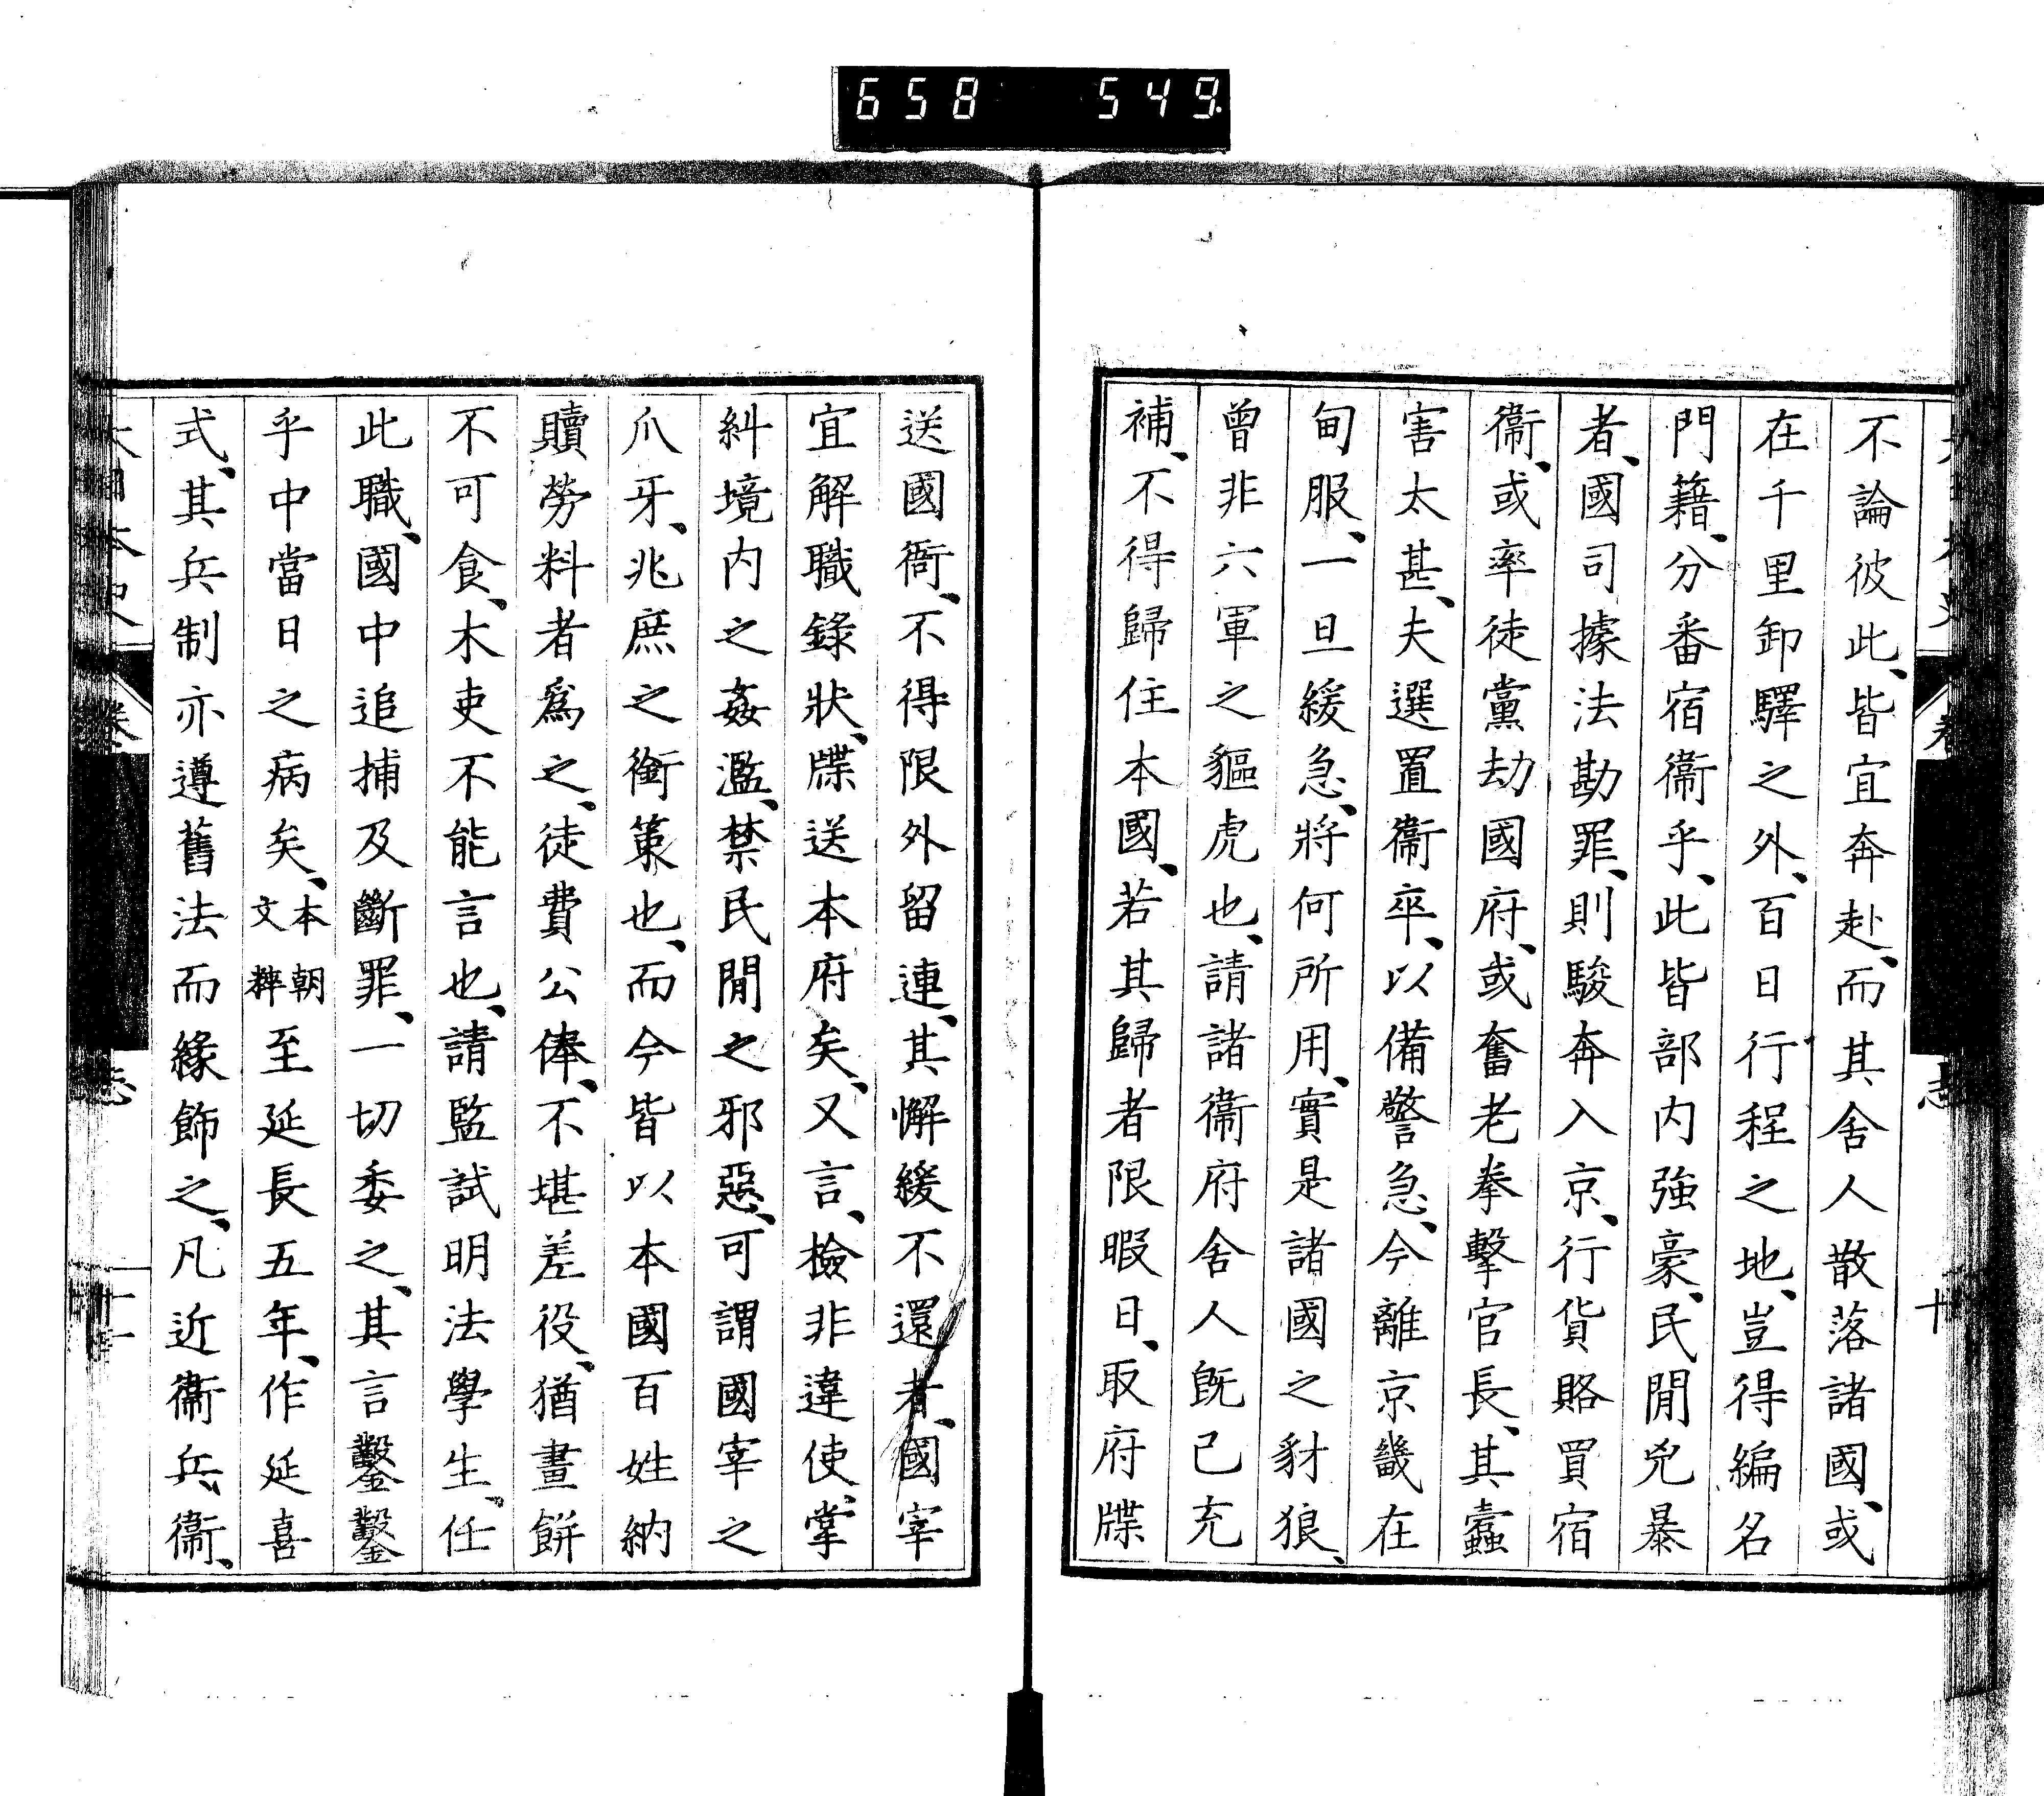 658 549.
不論彼此、皆宜奔赴、而其舍人散落諸國、或
在千里卸驛之外、百日行程之地、豈得編名
門籍、分番宿衞乎、此皆部内強豪、民閒兇暴
者、國司據法勘罪、則駿奔入京、行貨賂買宿
衞、或率徒黨劫國府、或奮老拳擊官長、其蠹
害太甚、夫選置衞卒、以備警急、今離京畿在
甸服、一旦緩急、將何所用、實是諸國之豺狼、
曾非六軍之貙虎也、請諸衞府舍人既已充
補、不得歸住本國、若其歸者限暇日、取府牒
送國衙、不得限外留連、其懈緩不還者、國宰
宜解職錄狀、牒送本府矣、又言、檢非違使、掌
糾境内之姦濫、禁民閒之邪惡、可謂國宰之
爪牙、兆庶之銜策也、而今皆以本國百姓納
贖勞料者爲之、徒費公俸、不堪差役、猶畫餠
不可食、木吏不能言也、請監試明法學生、任
此職、國中追捕及斷罪、一切委之、其言鑿鑿
乎中當日之病矣、本朝文粹至延長五年、作延喜
式、其兵制亦遵舊法而緣飾之、凡近衞兵衞、